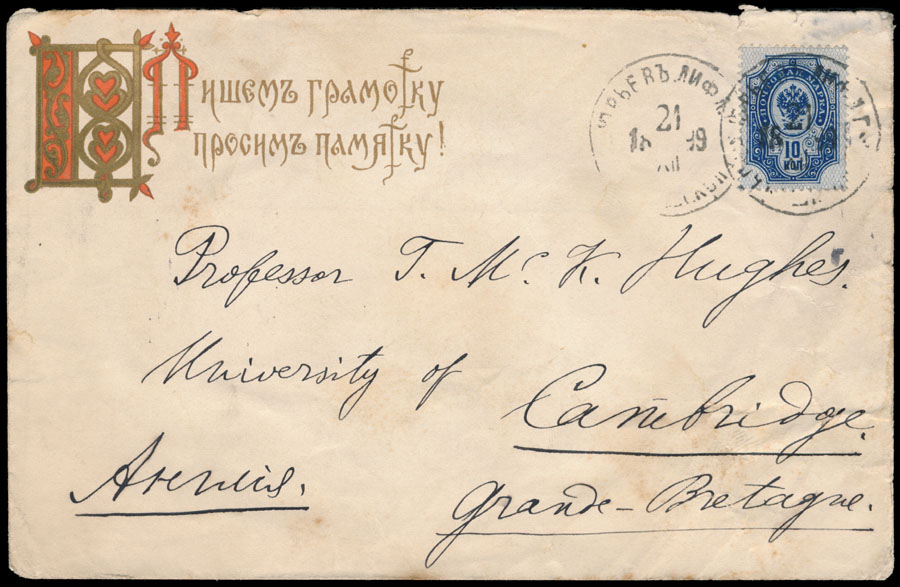 Пишемъ грамотку
просимъ памятку!
ЮРЬЕВЪ ЛИФЛ
21
18 99
XII
ПОЧТОВАЯ МАРКА
10
КОП
Professor T. McK. Hughes.
University of
Cambridge.
Англія.
Grande-Bretagne.